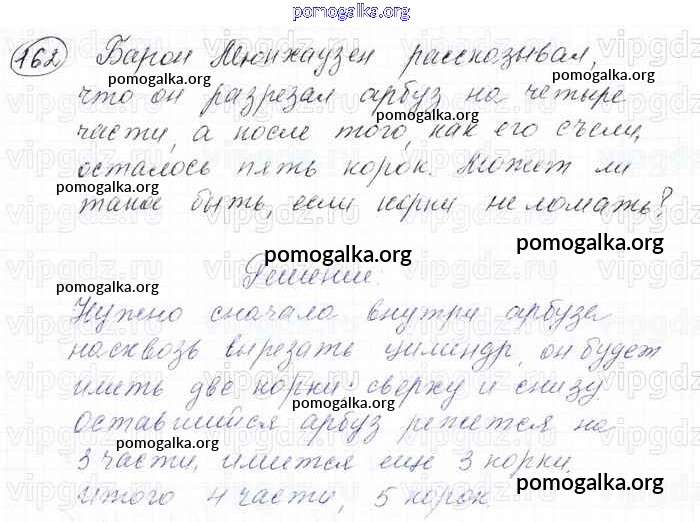 pomogalka.org
162 Барон Мюнхаузен рассказывал,
pomogalka.org
pomogalka.org
что он разрезал арбуз на четыре
pomogalka.org
части, а после того, как его съели,
осталось пять корок. Может ли
pomogalka.org
такое быть, если корки не ломать?
pomogalka.org
pomogalka.org
Решение:
pomogalka.org
Нужно сначала внутри арбуза
насквозь вырезать цилиндр, он будет
иметь две корки сверху и снизу.
pomogalka.org
Оставшийся арбуз режется на
pomogalka.org
3 части, имеется еще 3 корки.
pomogalka.org
Итого 4 части, 5 корок
pomogalka.org